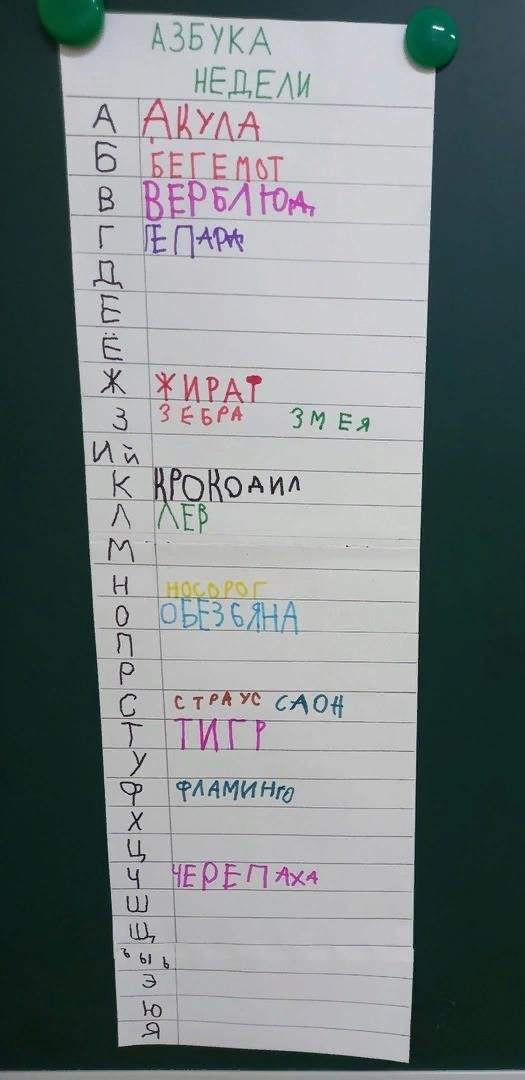 АЗБУКА
НЕДЕЛИ
А АКУЛА
Б БЕГЕМОТ
В ВЕРБЛЮД
Г ГЕПАРД
Д
Е
Ё
Ж ЖИРАТ
З ЗЕБРА ЗМЕЯ
Ий
К КРОКОДИЛ
Л ЛЕВ
М
Н НОСОРОГ
О ОБЕЗБЯНА
П
Р
С СТРАУС САОН
Т ТИГР
У
Ф ФЛАМИНГО
Х
Ц
Ч ЧЕРЕПАХА
Ш
Щ
ъ ы ь
Э
Ю
Я